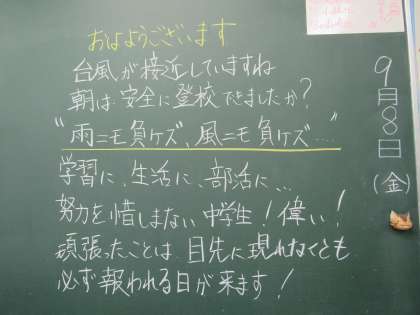 おはようございます
台風が接近していますね
朝は安全に登校できましたか?
"雨ニモ負ケズ、風ニモ負ケズ…"
学習に、生活に、部活に…
努力を惜しまない中学生!偉い!
頑張ったことは目先に現れなくとも
必ず報われる日が来ます!
9月8日(金)